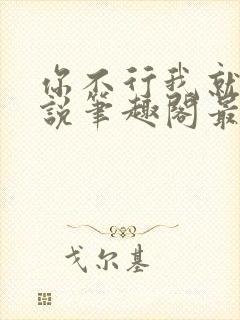 你不行我就
說筆趣閣最
戈尔基